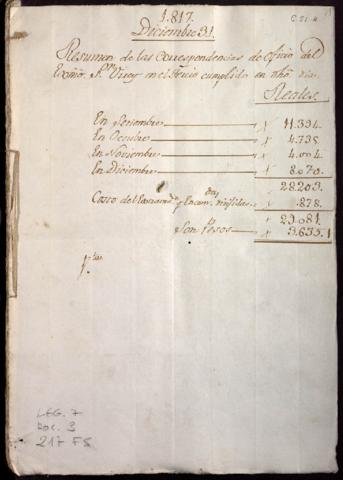 1.817.
C.21.4
Diciembre 31.
Resumen de las Correspondencias de Oficio del
Exmo. Sr. Virey en el Tercio cumplido en dho. dia.
Reales.
En Setiembre 11.394.
En Octubre 4.735.
En Noviembre 4.004
En Diciembre 8.070.
28.203.
Costo del y .878.
29.081.
Son Pesos 3.635.1
LEG. 7
DOC. 3
217 FS